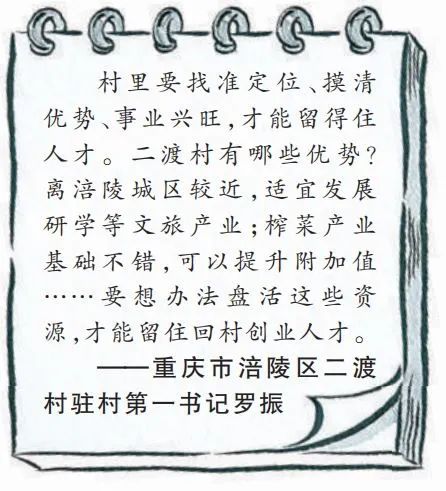 村里要找准定位、摸清
优势、事业兴旺,才能留得住
人才。二渡村有哪些优势?
离涪陵城区较近,适宜发展
研学等文旅产业;榨菜产业
基础不错,可以提升附加值
……要想办法盘活这些资
源,才能留住回村创业人才。
——重庆市涪陵区二渡
村驻村第一书记罗振